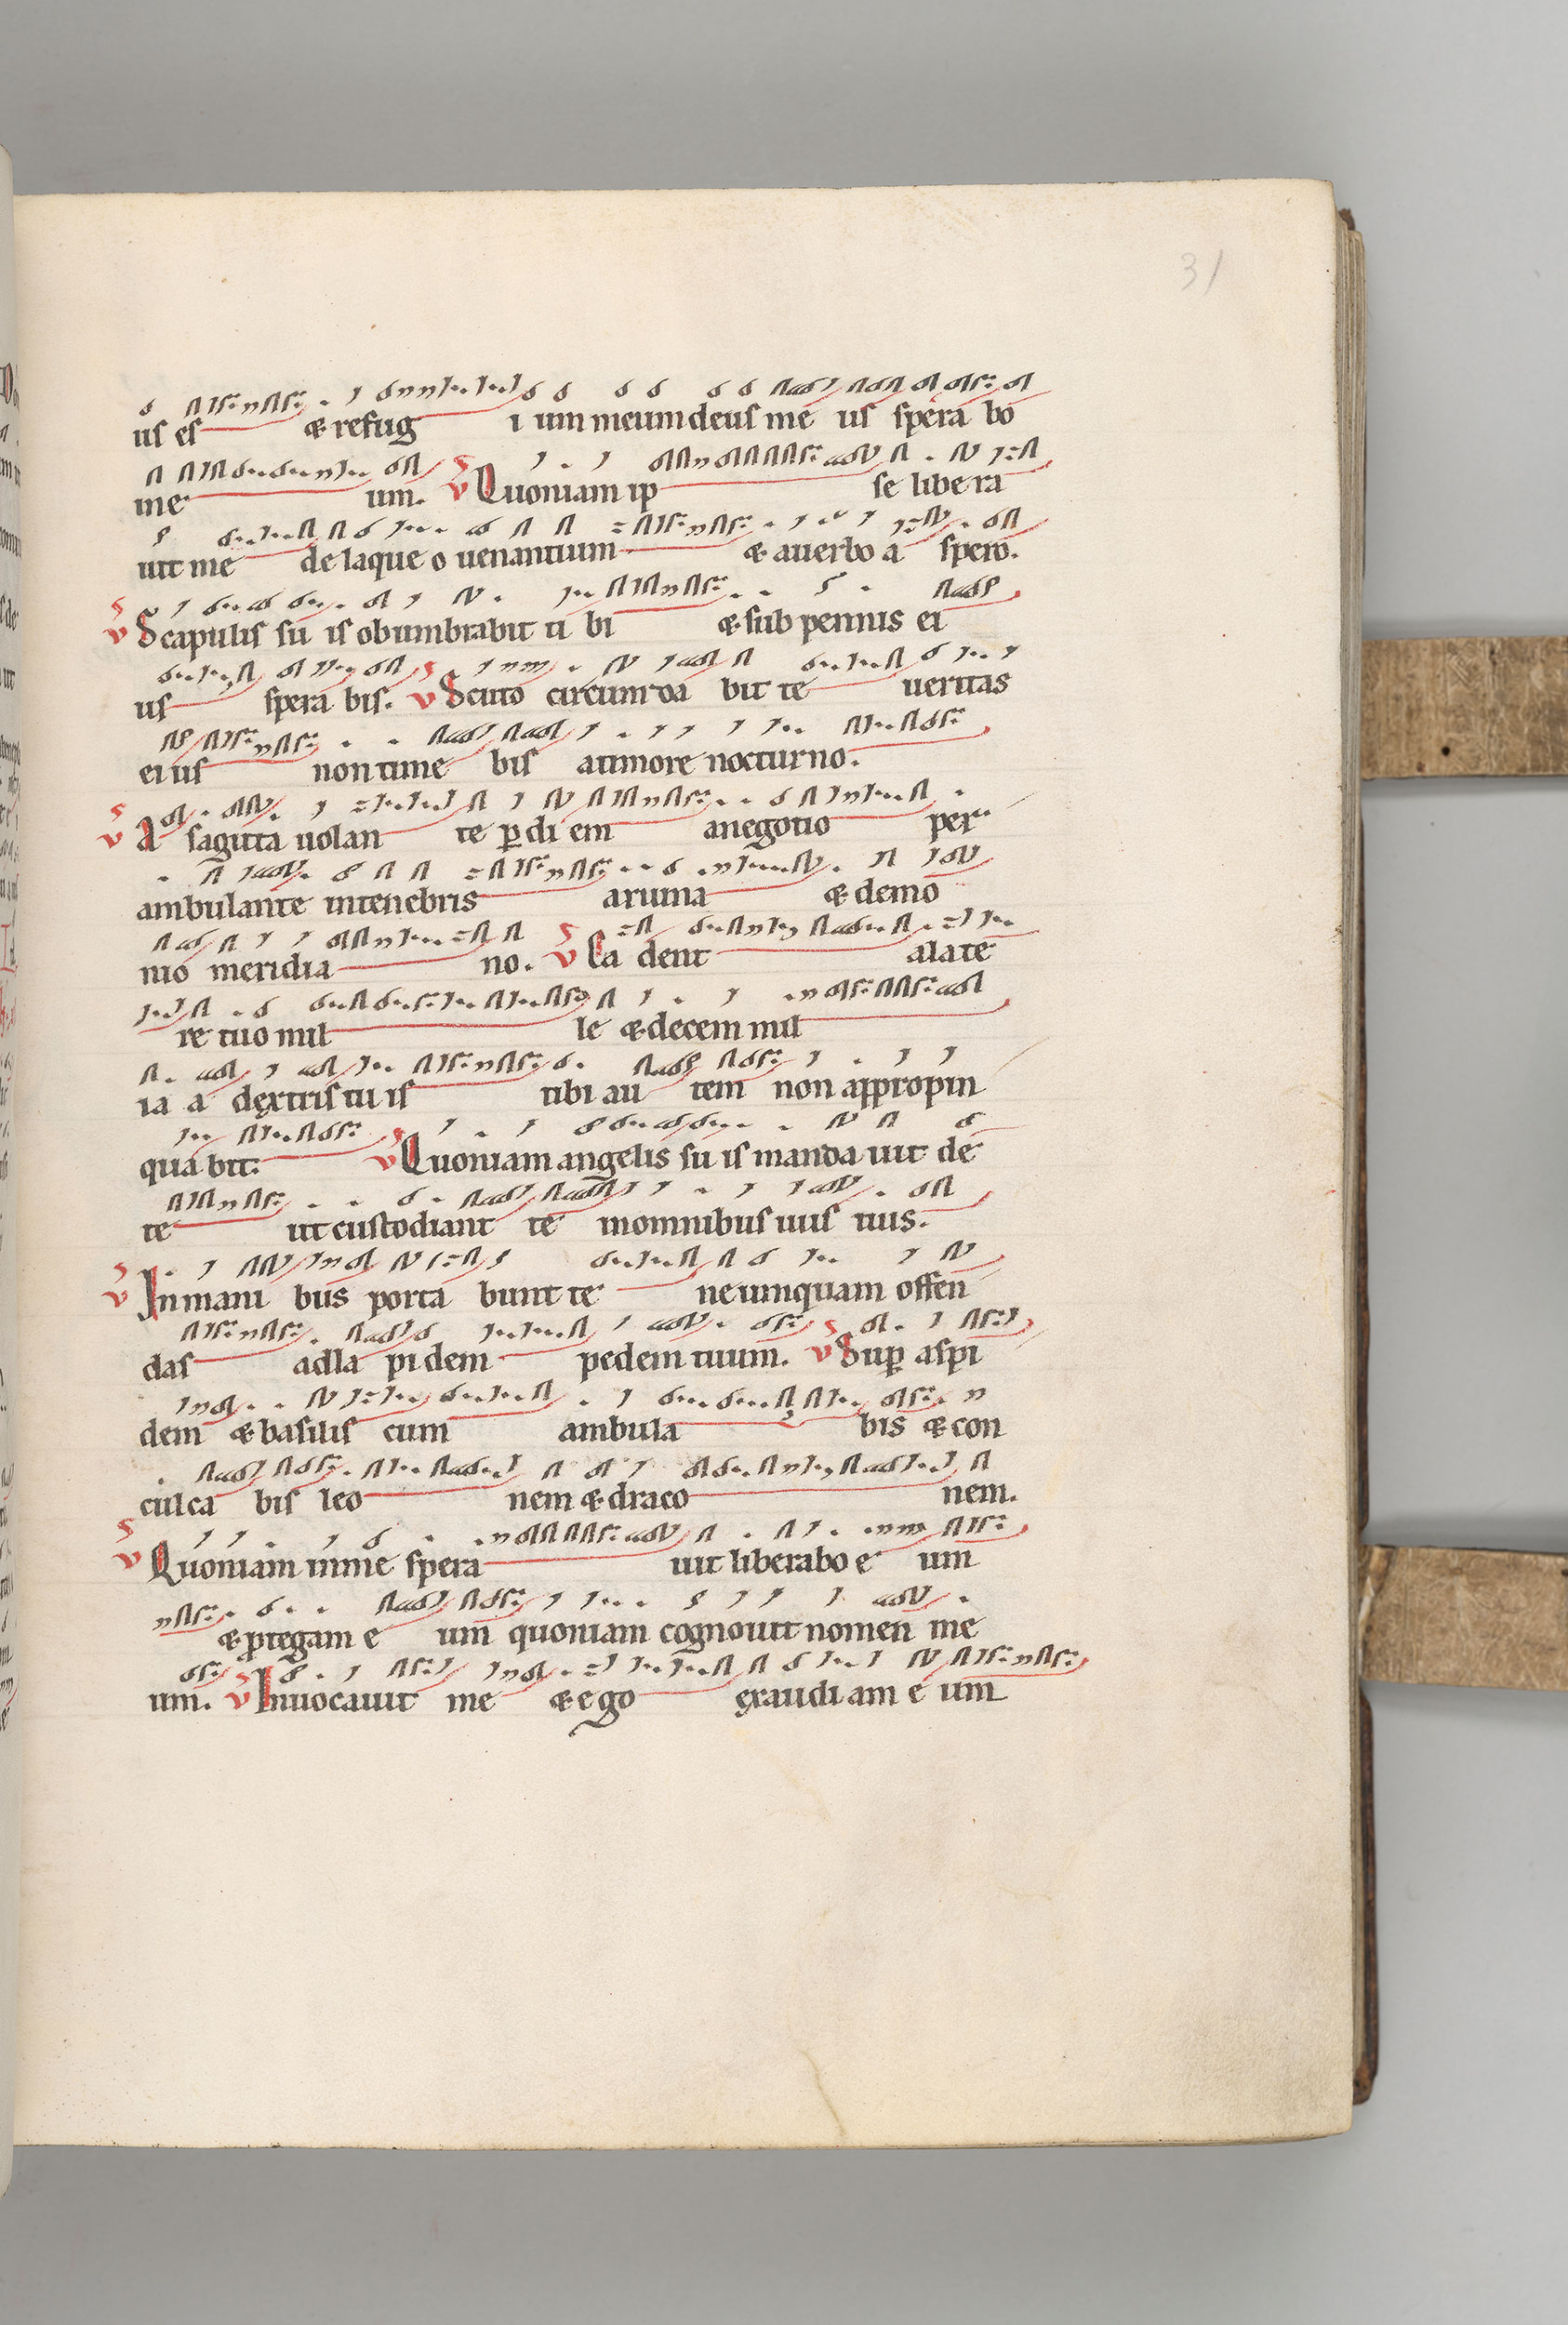 31
us es & refug i um meum deus me us spera bo
me um. v Quoniam ip se libera
uit me de laque o uenantium & auerbo a spero.
v Scapulis su is obumbrabit ti bi & sub pennis ei
us spera bis. v Scuto circumda bit te ueritas
ei us non time bis atimore nocturno.
v A sagitta uolan te p di em anegotio per
ambulante intenebris aruina & demo
nio meridia no. v Ca dent alate
re tuo mil le & decem mil
ia a dęxtris tu is tibi au tem non appropin
qua bit. v Quoniam angelis su is manda uit de
te ut custodiant te inomnibus uiis tuis.
v In mani bus porta bunt te ne umquam offen
das adla pi dem pedem tuum. v Sup aspi
dem & basilis cum ambula bis & con
culca bis leo nem & draco nem.
v Quoniam inme spera uit liberabo e um
& protegam e um quoniam cognouit nomen me
um. v Inuocauit me & ego ęxaudi am e um